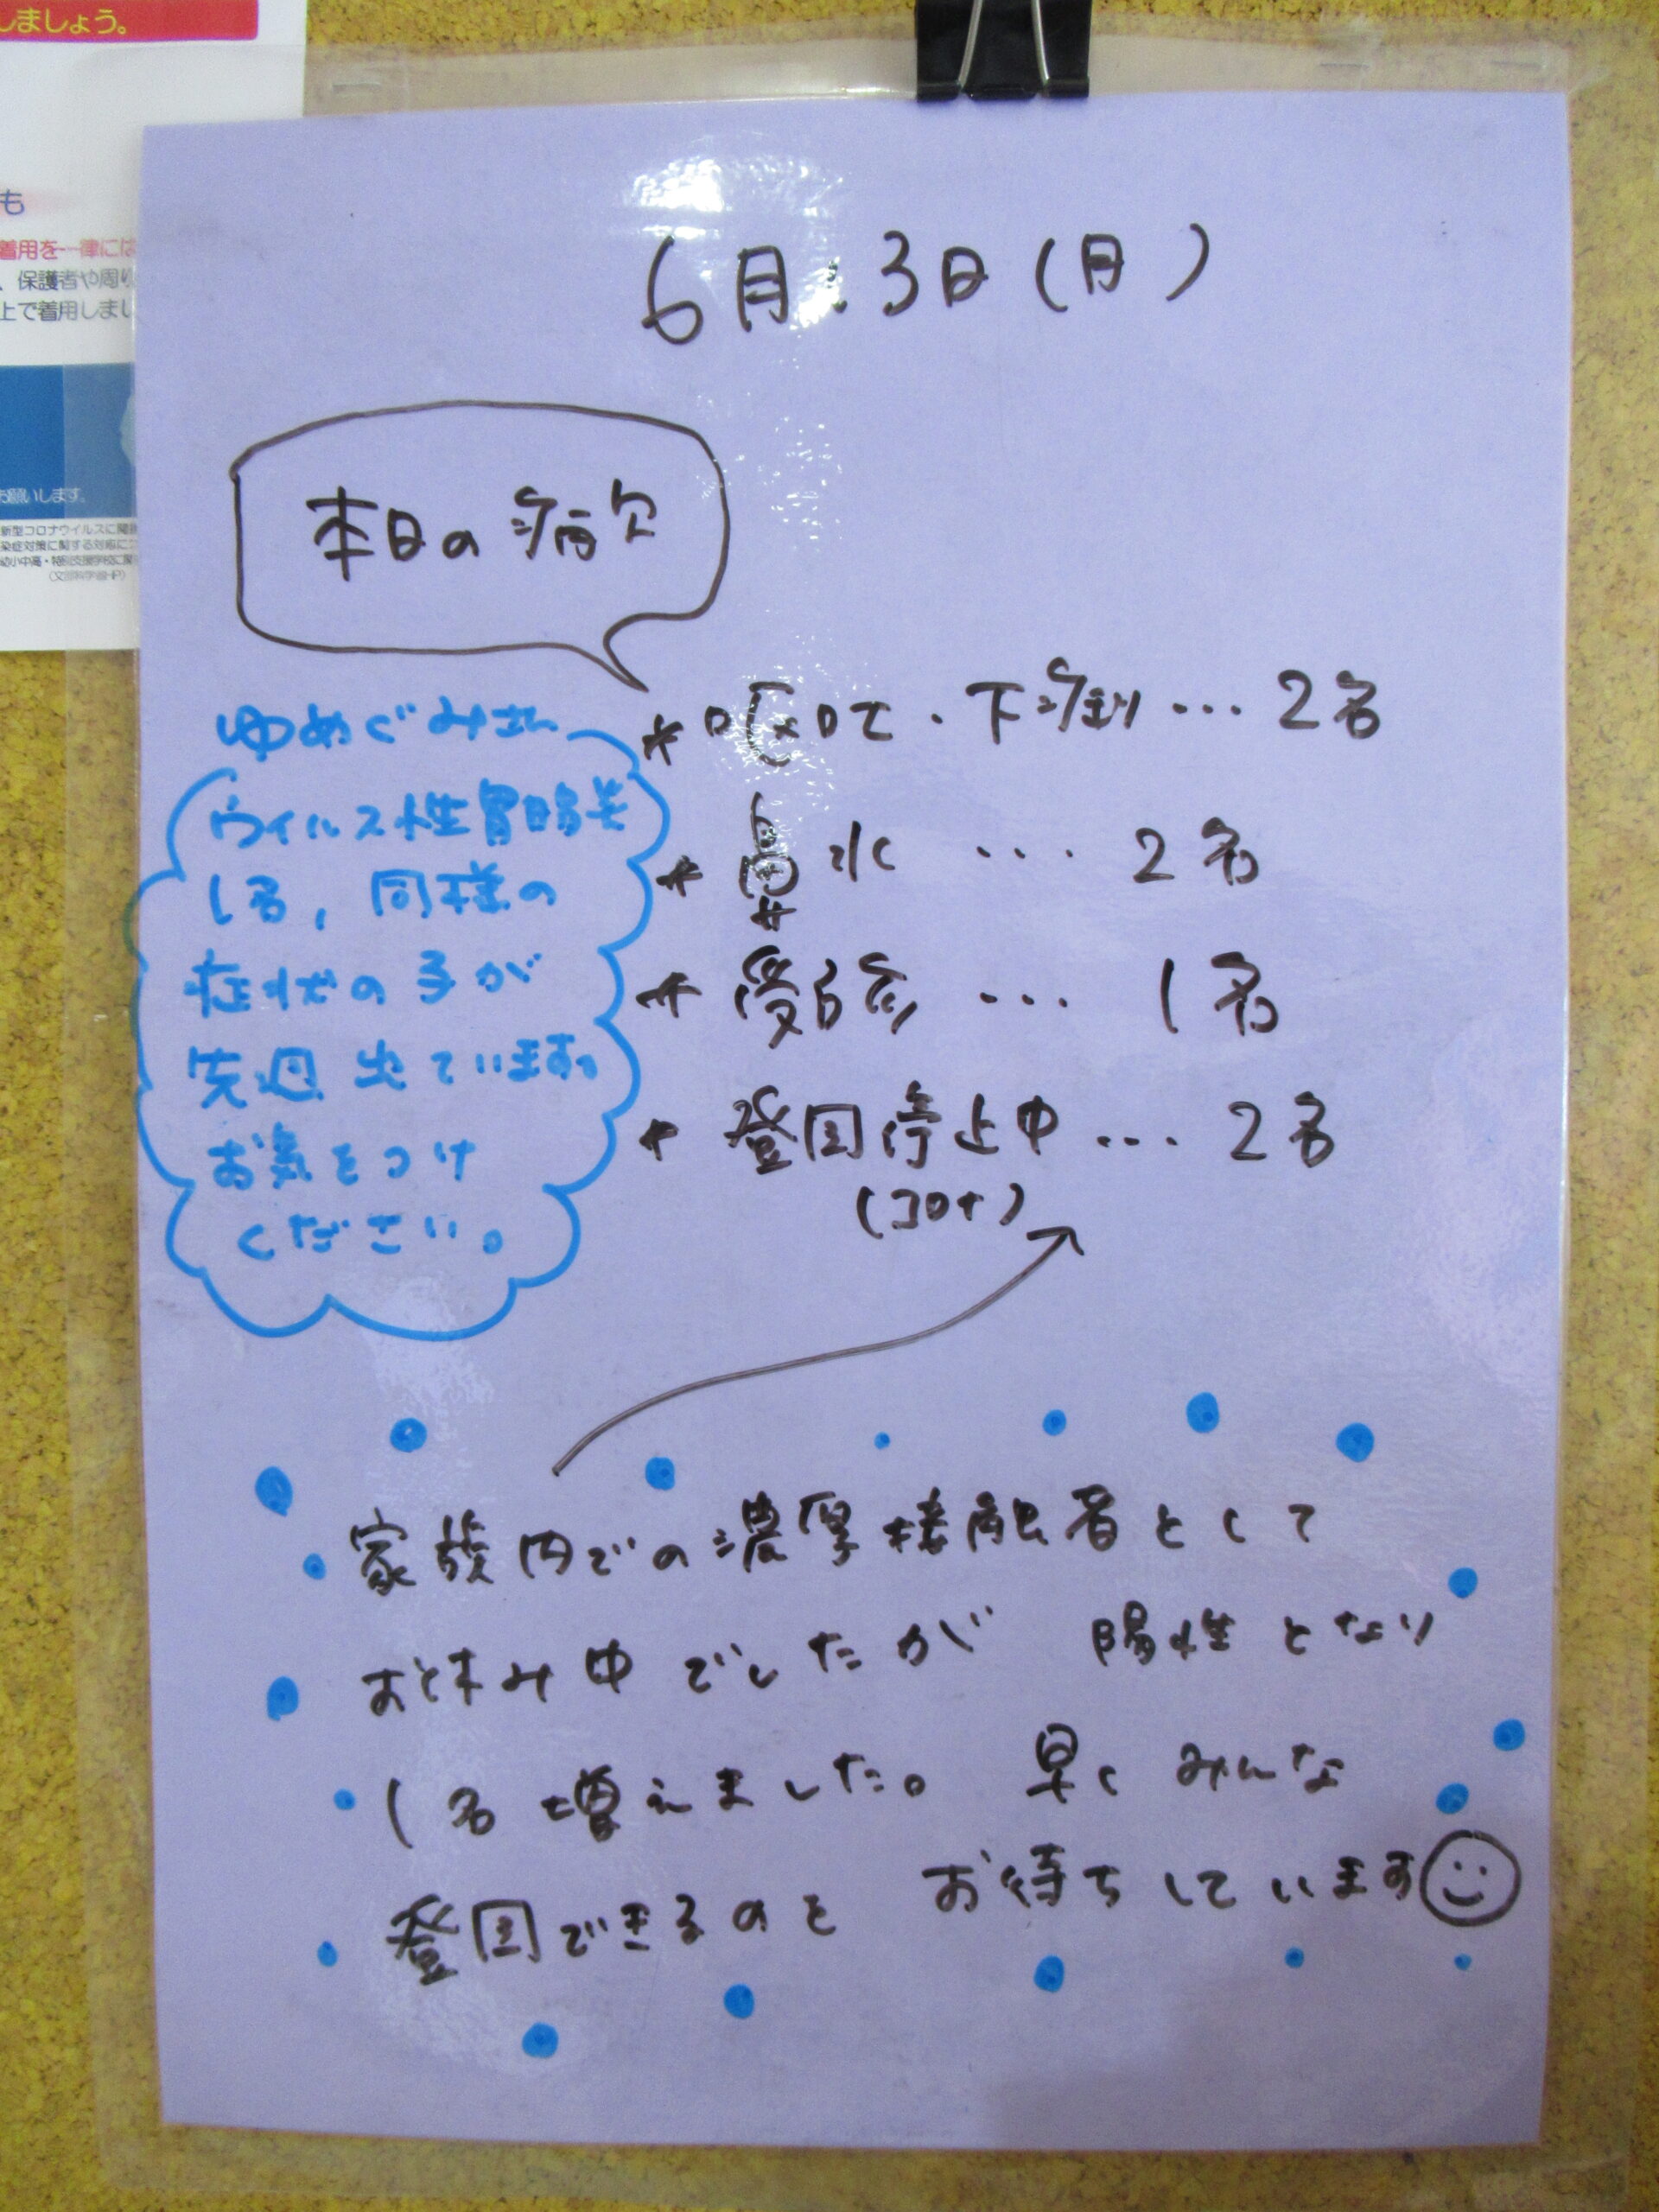 しましょう。
も
着用を一律には
、保護者や周り
上で着用しまし
お願いします。
新型コロナウイルスに関
染症対策に関する対応に
幼小中高・特別支援学校に関
(文部科学省HP)
6月3日(月)
本日の病欠
*嘔吐・下痢…2名
*鼻水…2名
*受診…1名
*登園停止中…2名
(コロナ)
ゆめぐみさん
ウイルス性胃腸炎
1名,同様の
症状の子が
先週出ています。
お気をつけ
ください。
家族内での濃厚接触者として
お休み中でしたが 陽性となり
1名増えました。早くみんな
登園できるのを お待ちしています